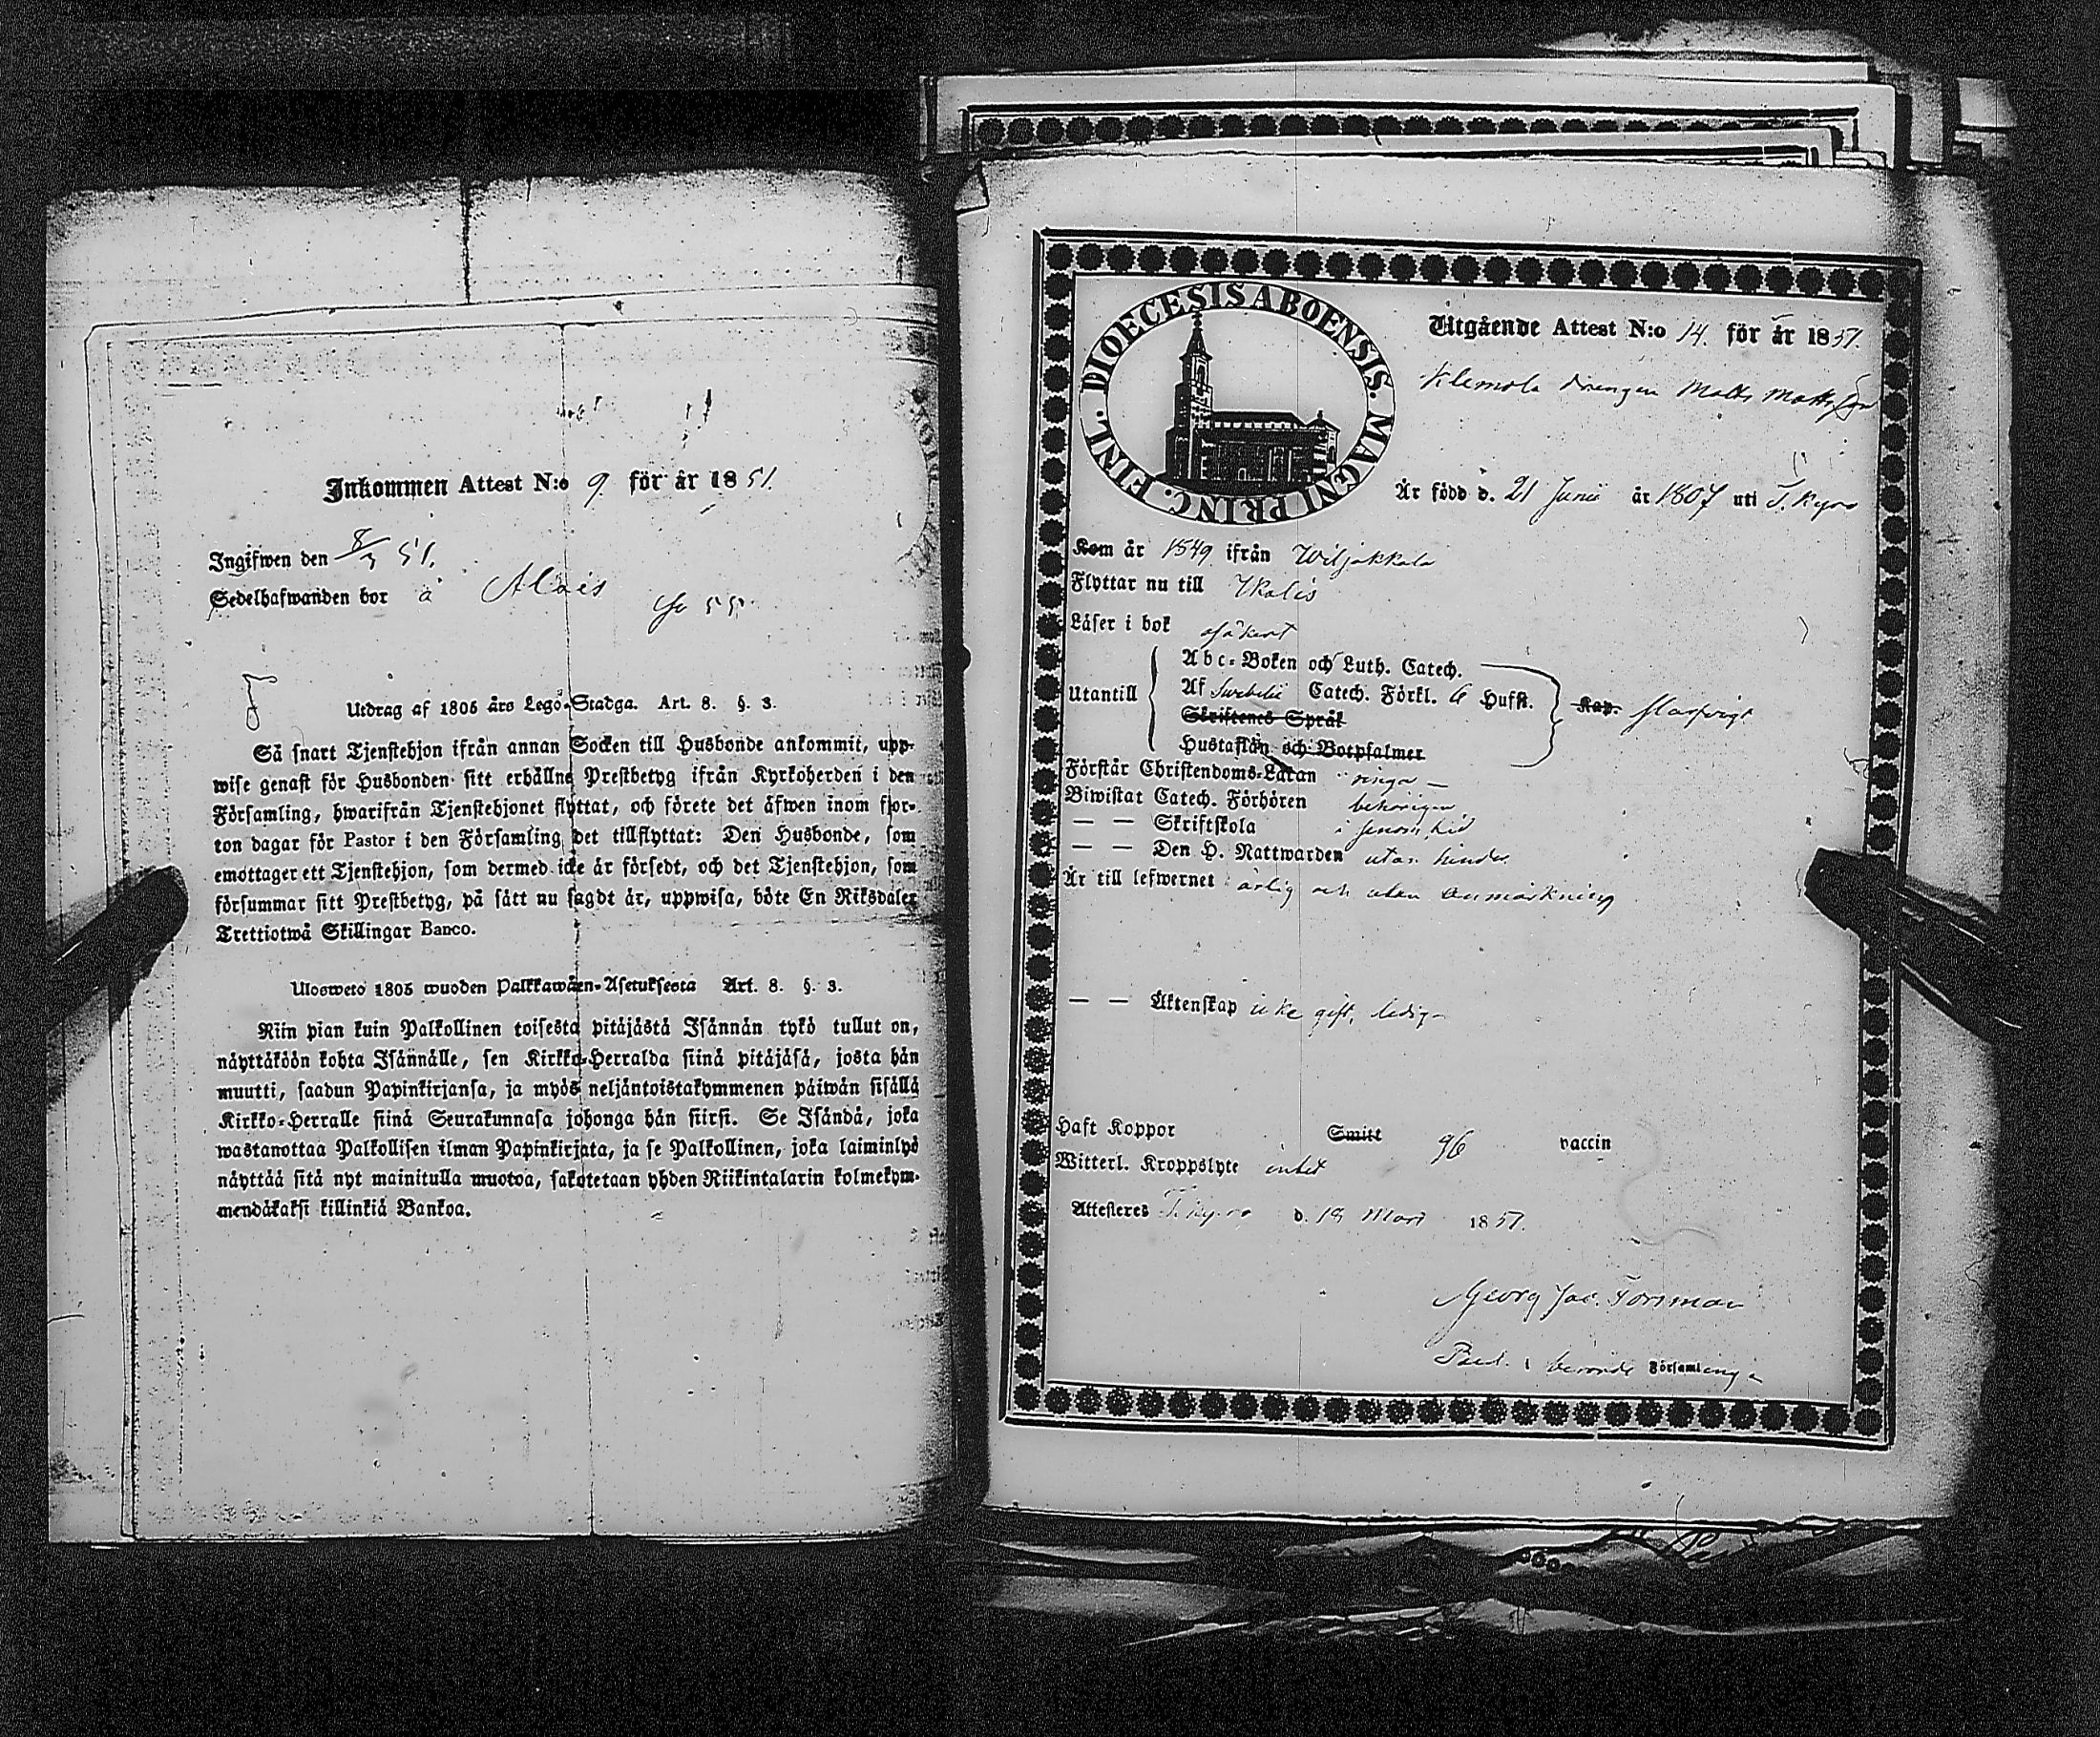 Inkommen Attest N:o 9. för år 1851.
Ingifwen den 8/3 51.
Sedelhafwanden bor å
Utdrag af 1805 års Lego-Stadga. Art. 8. §. 3.
Så snart Tjenstehjon ifrån annan Socken till Husbonde ankommit, upp-
wise genast för Husbonden sitt erhållne Prestbetyg ifrån Kyrkoherden i den
Församling, hwarifrån Tjenstehjonet flyttat, och förete det äfwen inom fjor-
ton dagar för Pastor i den Församling det tillflyttat: Den Husbonde, som
emottager ett Tjenstehjon, som dermed icke är försedt, och det Tjenstehjon, som
försummar sitt Prestbetyg, på sätt nu sagdt är, uppwisa, böte En Riksdaler
Trettiotwå Skillingar Banco.
Ulosweto 1805 wuoden Palkkawäen-Asetuksesta Art. 8. §. 3.
Niin pian kuin Palkollinen toisesta pitäjästä Isännän tykö tullut on,
näyttäköön kohta Isännälle, sen Kirkko-Herralda siinä pitäjäsä, josta hän
muutti, saadun Papinkirjansa, ja myös neljäntoistakymmenen päiwän sisällä
Kirkko-Herralle siinä Seurakunnasa johonga hän siirsi. Se Isändä, joka
wastanottaa Palkollisen ilman Papinkirjata, ja se Palkollinen, joka laiminlyö
näyttää sitä nyt mainitulla muotoa, sakotetaan yhden Riikintalarin kolmekym-
mendäkaksi killinkiä Bankoa.
FINL. DIOECESIS ABOENSIS. MAGNI PRINC.
Utgående Attest N:o 14. för år 1851.
Klemola drengen Matts Mattsson
Är född d. 21 Junii år 1807 uti T. Kyro
Kom år 1849 ifrån Wiljakkala
Flyttar nu till Ikalis
Läser i bok osäkert
Utantill
Abc-Boken och Luth. Catech.
Af Svebelii Catech. Förkl. 6 Hufst.
Skriftenes Språk
Hustaflan och Botpsalmer
Kap. slarfvigt
Förstår Christendoms-Läran ringa
Biwistat Catech. Förhören behörigen
— — Skriftskola i
— — Den H. Nattwarden utan hinder
Är till lefwernet ärlig och utan anmärkning
— — Äktenskap icke gift, ledig
Haft Koppor Smitt vaccin
Witterl. Kroppslyte intet
Attesteres T. Kyro d. 18 Mars 1851.
Georg Jac. Forsman
i Församling